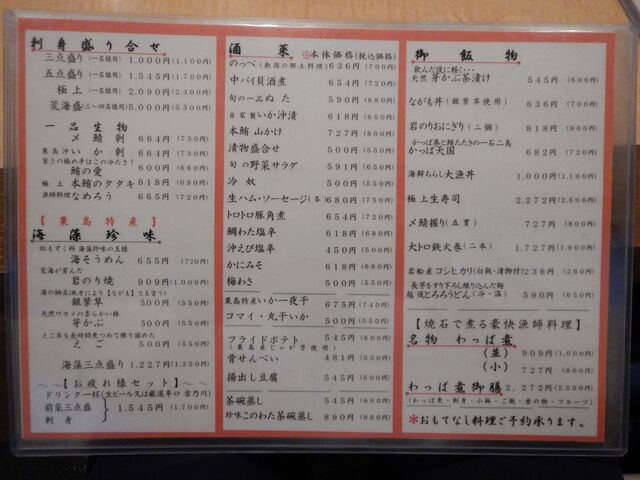 刺身盛り合せ
三点盛り(一名様用) 1,000円(1,100円)
五点盛り(一名様用) 1,545円(1,700円)
極上(一名様用) 2,090円(2,300円)
荒海盛(三〜四名様用)5,000円(5,500円)
一品生物
〆鯖刺 664円(730円)
粟島沖いか刺 664円(730円)
旨さの極め手はこの冷たさ!
鮪の愛 600円(660円)
極上 本鮪のタタキ 618円(680円)
漁師料理 なめろう 665円(732円)
【粟島特産】
海藻珍味
紅もずく科 海藻珍味の王様
海そうめん 655円(720円)
荒海が育んだ
岩のり焼 909円(1.000円)
海の納豆(地方により【ながも】ともまう)
銀葉草 500円(550円)
天然ワカメの柔らかい株
芽かぶ 500円(550円)
えご草を長時間煮つめて練り固めた
えご 500円(550円)
海藻三点盛り 1.227円(1.350円)
〜〜【お疲れ様セット】〜〜
ドリンク一杯(生ビール又は厳選辛口 吉乃川)
前菜三点盛
刺身
1,545円(1,700円)
酒菜 ※本体価格(税込価格)
のっぺ(新潟の郷土料理)636円(700円)
中バイ貝酒煮 654円(720円)
旬の一品 ぬた 590円(680円)
自家製いか沖漬 618円(650円)
本鮪 山かけ 727円(800円)
漬物盛合せ 500円(550円)
旬の野菜サラダ 591円(650円)
冷奴 500円(550円)
生ハム・ソーセージ(各)680円(750円)
トロトロ豚角煮 654円(720円)
鯛わた塩辛 618円(680円)
沖えび塩辛 450円(500円)
かにみそ 618円(680円)
梅わさ 500円(550円)
粟島特産いか一夜干 675円(740円)
コマイ・丸干いか 500円(550円)
フライドポテト 545円(600円)
(粟島産じゃが芋使用)
骨せんべい 481円(530円)
揚出し豆腐 545円(600円)
茶碗蒸し 545円(600円)
珍味このわた茶碗蒸し 890円(980円)
御飯物
飲んだ後に軽く…
天然 芽かぶ茶漬け 545円(600円)
ながも丼(銀葉草使用) 636円(700円)
岩のりおにぎり(二個) 818円(900円)
かっぱ巻と鯵たたきの一石二鳥
かっぱ天国 682円(750円)
海鮮ちらし 大漁丼 1,772円(1,950円)
極上生寿司 2,272円(2,500円)
〆鯖握り(五貫) 727円(800円)
大トロ鉄火巻(二本) 1,727円(1,900円)
岩船産コシヒカリ(白飯・漬物付)236円(260円)
長芋をすり下ろし練り込んだ麺
越後とろろうどん(冷・温) 590円(650円)
【焼石で煮る豪快漁師料理】
名物 わっぱ煮
(並) 909円(1.000円)
(小) 727円(800円)
わっぱ煮御膳 2.272円(2,500円)
(わっぱ煮・刺身・小鉢・ご飯・香の物・フルーツ)
※おもてなし料理ご予約承ります。